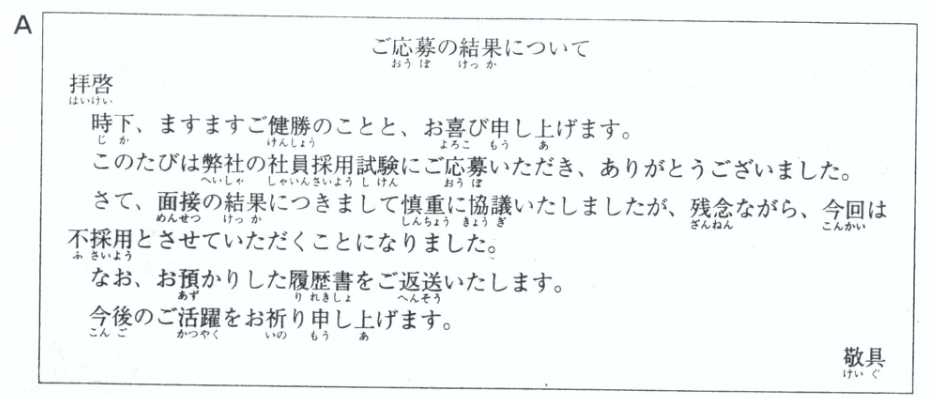 A
ご応募の結果について
おうぼ けっか
拝啓
はいけい
時下、ますますご健勝のことと、お喜び申し上げます。
じか けんしょう よろこ もう あ
このたびは弊社の社員採用試験にご応募いただき、ありがとうございました。
へいしゃ しゃいんさいようしけん おうぼ
さて、面接の結果につきまして慎重に協議いたしましたが、残念ながら、今回は
めんせつ けっか しんちょう きょうぎ ざんねん こんかい
不採用とさせていただくことになりました。
ふさいよう
なお、お預かりした履歴書をご返送いたします。
あず りれきしょ へんそう
今後のご活躍をお祈り申し上げます。
こんご かつやく いの もう あ
敬具
けいぐ